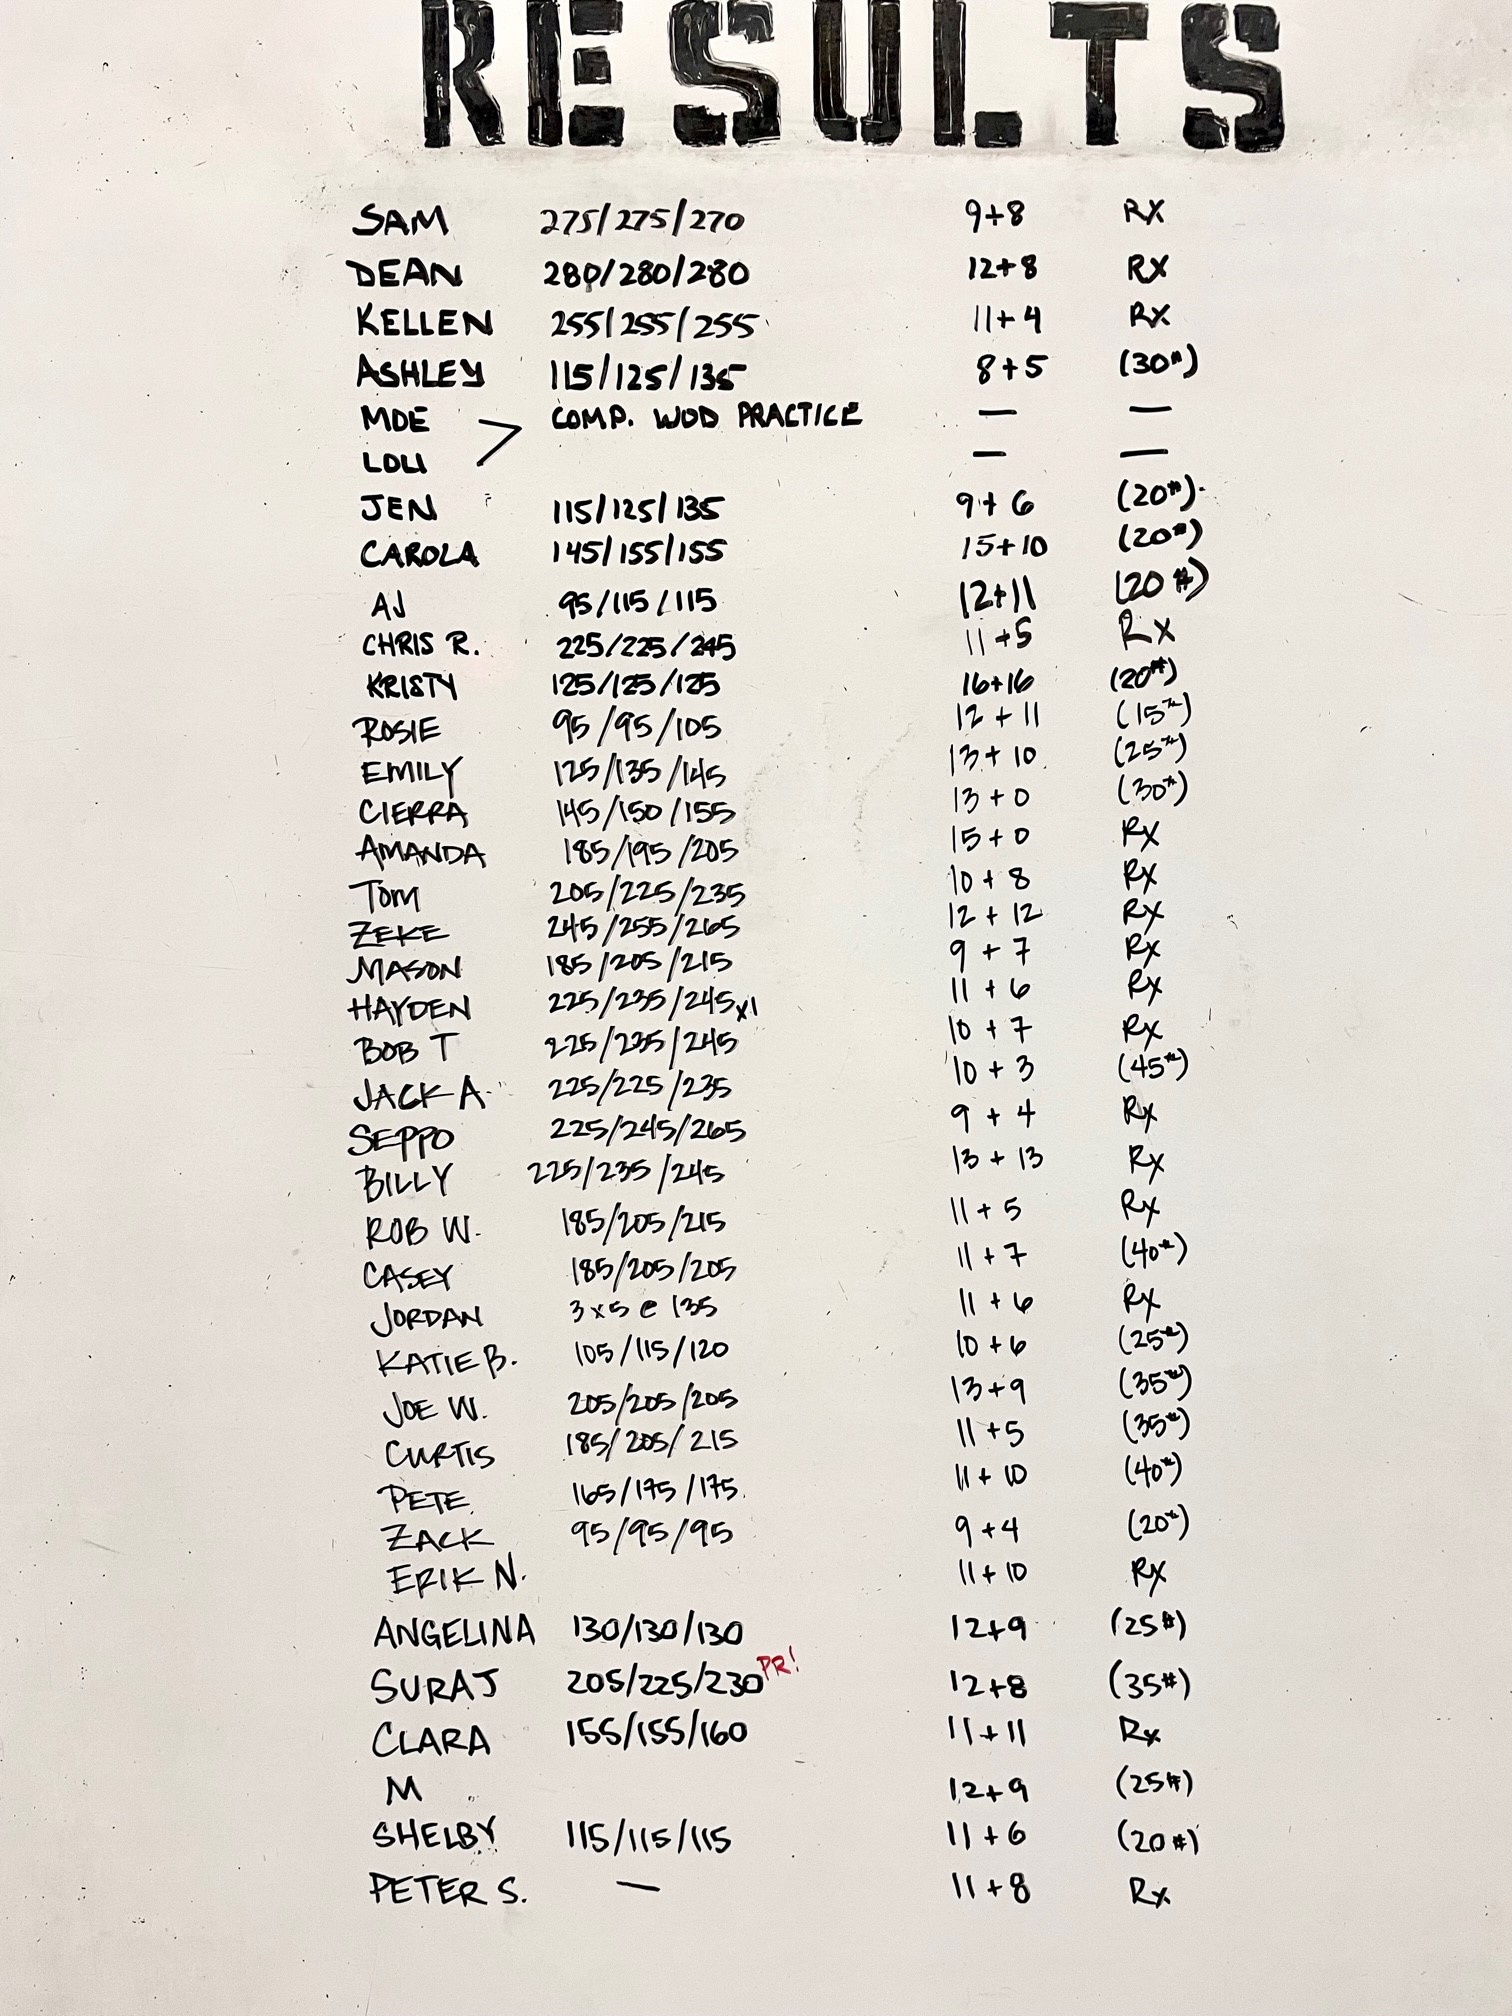 RESULTS
SAM 275/275/270 9+8 RX
DEAN 280/280/280 12+8 RX
KELLEN 255/255/255 11+4 RX
ASHLEY 115/125/135 8+5 (30#)
MOE > COMP. WOD PRACTICE — —
LOLI — —
JEN 115/125/135 9+6 (20#)
CAROLA 145/155/155 15+10 (20#)
AJ 95/115/115 12+11 (20#)
CHRIS R. 225/225/245 11+5 RX
KRISTY 125/125/125 16+16 (20#)
ROSIE 95/95/105 12+11 (15#)
EMILY 125/135/145 13+10 (25#)
CIERRA 145/150/155 13+0 (30#)
AMANDA 185/195/205 15+0 RX
TOM 205/225/235 10+8 RX
ZEKE 245/255/265 12+12 RX
MASON 185/205/215 9+7 RX
HAYDEN 225/235/245x1 11+6 RX
BOB T 225/235/245 10+7 RX
JACK A. 225/225/235 10+3 (45#)
SEPPO 225/245/265 9+4 RX
BILLY 225/235/245 13+13 RX
ROB W. 185/205/215 11+5 RX
CASEY 185/205/205 11+7 (40#)
JORDAN 3x5 @ 135 11+6 RX
KATIE B. 105/115/120 10+6 (25#)
JOE W. 205/205/205 13+9 (35#)
CURTIS 185/205/215 11+5 (35#)
PETE 165/175/175 11+10 (40#)
ZACK 95/95/95 9+4 (20#)
ERIK N. 11+10 RX
ANGELINA 130/130/130 12+9 (25#)
SURAJ 205/225/230 PR! 12+8 (35#)
CLARA 155/155/160 11+11 Rx
M 12+9 (25#)
SHELBY 115/115/115 11+6 (20#)
PETER S. — 11+8 Rx